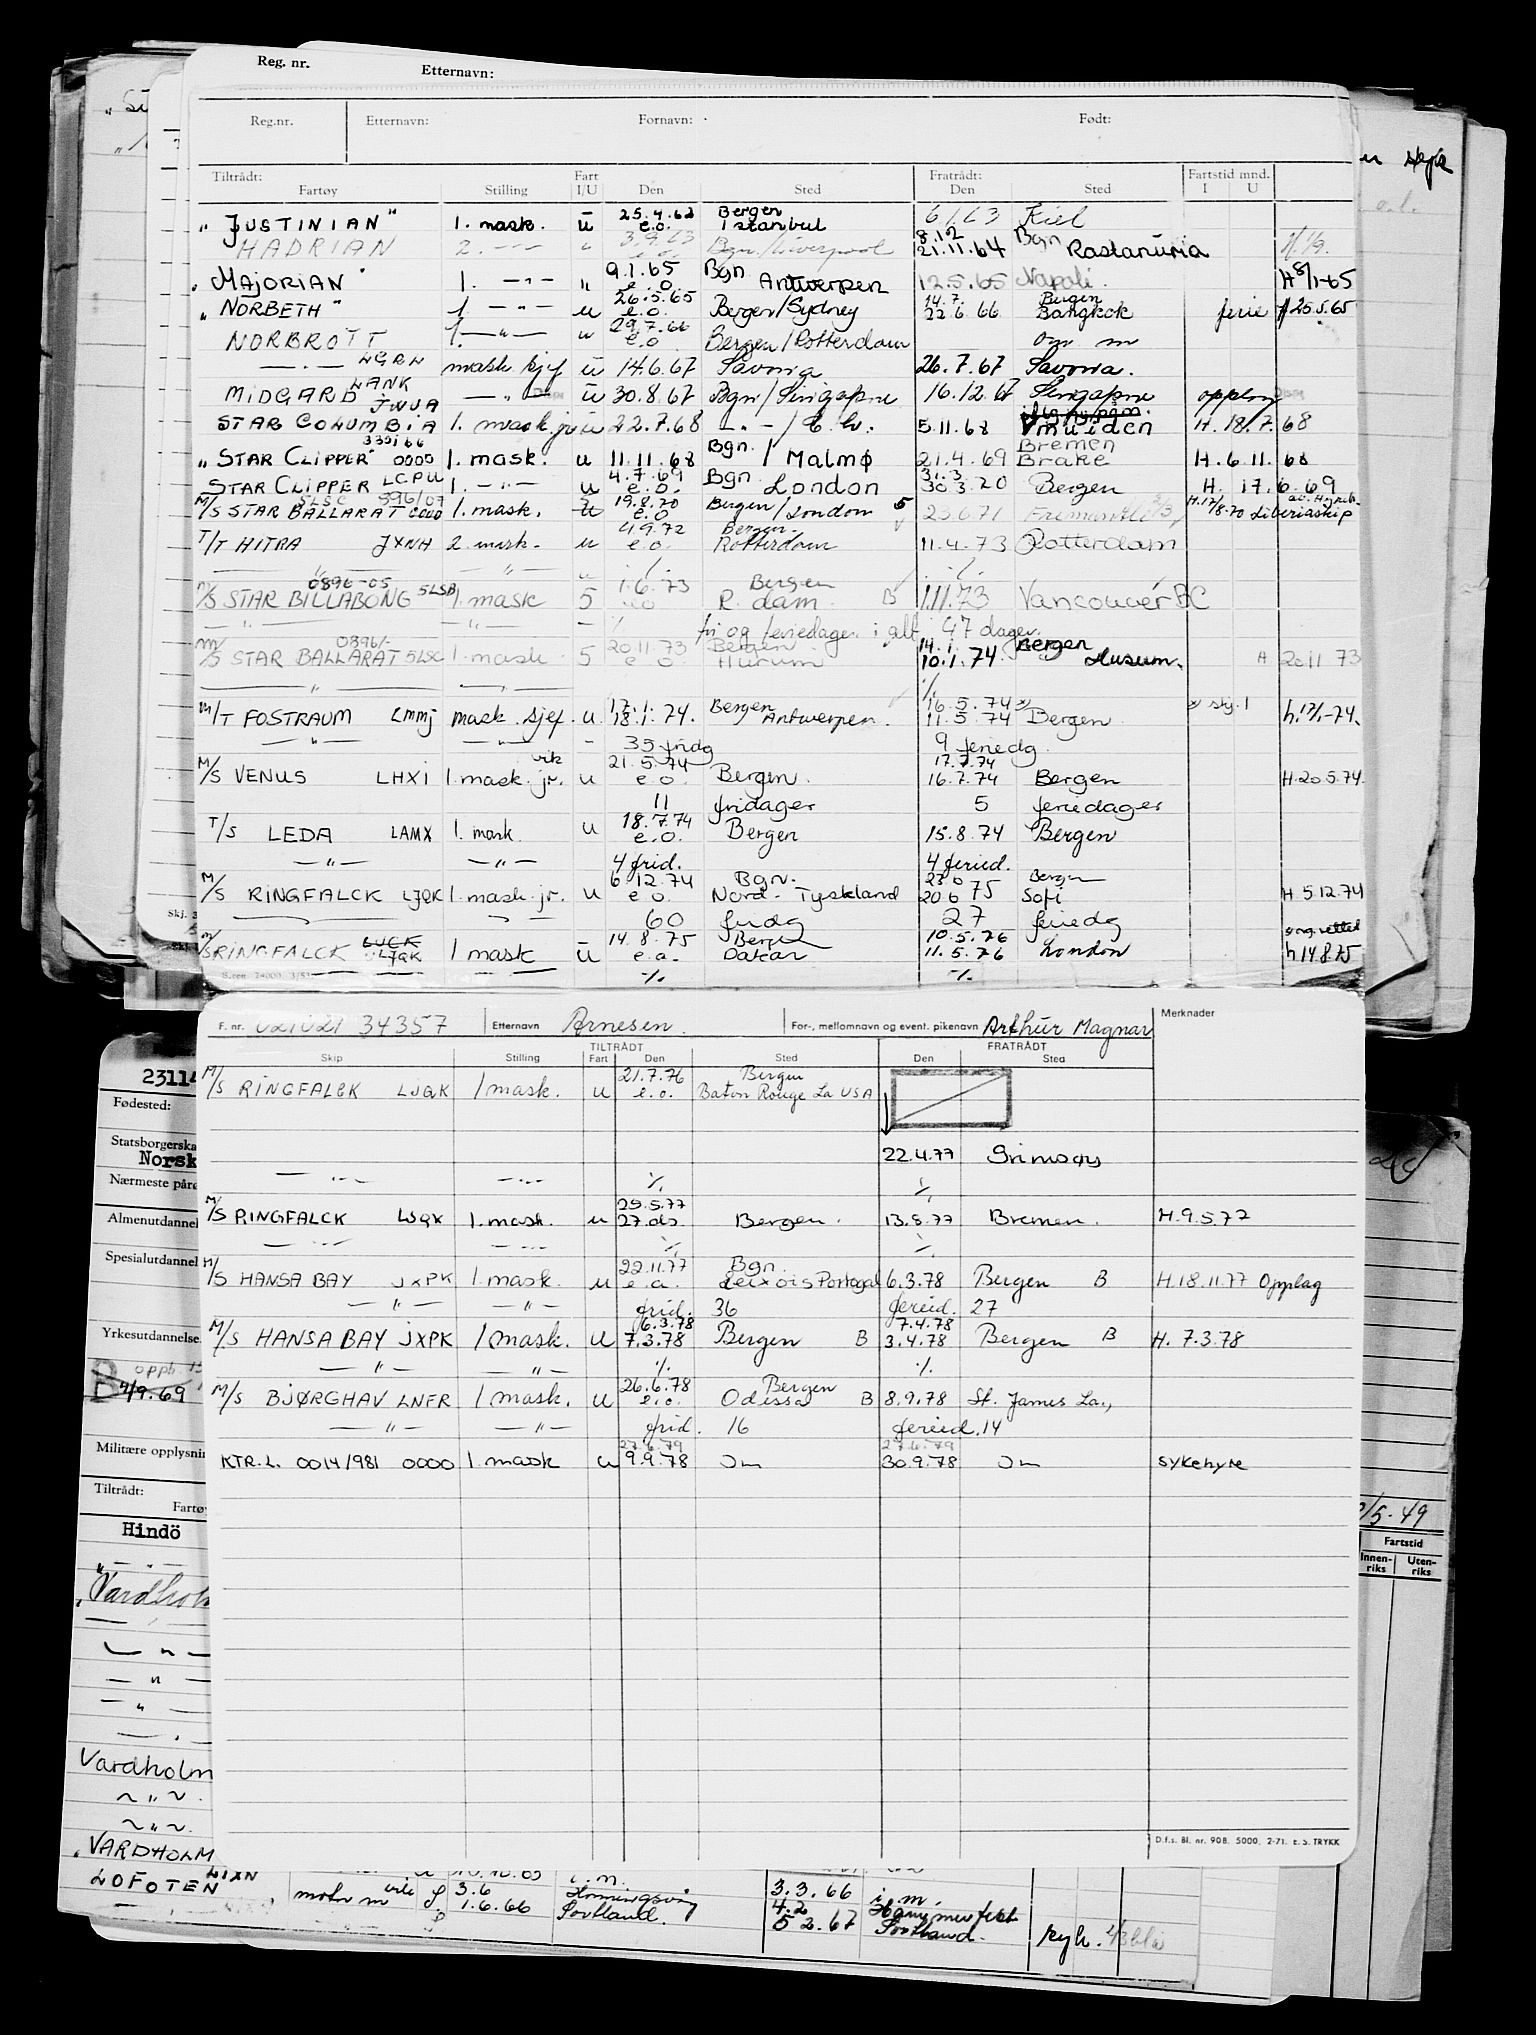 Reg. nr. Etternavn:
Reg.nr. Etternavn: Fornavn: Født:
Tiltrådt: Fart Fratrådt: Fartstid mnd.
Fartøy Stilling I/U Den Sted Den Sted I U
25.4.62 Bergen
„ JUSTINIAN" 1. mask. u e.o. Istanbul 6/1 63 Kiel
3.9.63 8.12 Bgn
HADRIAN 2. -"- " Bgn/Liverpool 21.11.64 Rastanuria
9.1.65 Bgn
„ MAJORIAN" 1. -"- " e.o. Antwerpen 12.5.65 Napoli. H 8/1-65
26.5.65 14.7. Bergen
„ NORBETH" 1. -"- u e.o. Bergen/Sydney 22.6.66 Bangkok ferie 25.5.65
29.7.66
NORBROTT 1. -"- u e.o Bergen/Rotterdam om m
LGRN mask sjef u 14.6.67 Savona 26.7.67 Savona.
LANK
MIDGARD -"- u 30.8.67 Bgn/Singapore 16.12.67 Singapore opplag
JWUA
STAR COLUMBIA 1. mask jr u 22.7.68 -"-/ 5.11.68 Ymuiden H. 18.7.68
Bgn. Bremen
„ STAR CLIPPER" 0000 1. mask. u 11.11.68 / Malmø 21.4.69 Brake H. 6.11.68
4.7.69 Bgn 31.3
STAR CLIPPER LCPU 1. -"- u e.o. London 30.3.70 Bergen H. 17.6.69
5LSC 996/07 19.8.70 H.17/8-70
M/S STAR BALLARAT 0000 1. mask. u e.o Bergen/London 5 23.6.71 Fremantle Liberiaskip
4.9.72 Bergen
T/T HITRA JXNH 2. mask. u e.o. Rotterdam 11.4.73 Rotterdam
—"— —"— u ./. ./.
0896-05 1.6.73 Bergen
M/S STAR BILLABONG 5LSB 1. mask 5 e.o R.dam. B 1.11.73 Vancouver BC
—"— —"— — fri og feriedager i alt 47 dager.
0896/- 20.11.73 Bergen 14.1. Bergen
M/S STAR BALLARAT 5LSC 1. mask 5 e.o. Husum 10.1.74 Husum. A 20.11 73
—"— —"— ./.
17.1. Bergen 16.5.74
M/T FOSTRAUM LMMJ mask. sjef. u 18.1.74. Antwerpen. 11.5.74 Bergen h.17/1-74.
—"— —"— - 35 fridg 9 feriedg.
vik 21.5.74 17.7.74
M/S VENUS LHXI 1. mask. jr. u e.o. Bergen. 16.7.74 Bergen H.20.5.74.
11 fridager 5 feriedager
18.7.74
T/S LEDA LAMX 1. mask. u e.o. Bergen 15.8.74 Bergen
—"— —"— 4 frid. 4 feried.
6.12.74 Bgn. 23.6 Bergen
M/S RINGFALCK LJQK 1. mask. jr. u e.o. Nord-Tyskland 20 6 75 Sofi H. 5.12.74
60 fridg 27 feriedg
14.8.75 Bergen 10.5.76
M/S RINGFALCK LJQK 1 mask u e.o. Dakar 11.5.76 London h 14.8.75
./. ./.
F. nr. 021021 34357 Etternavn Arnesen. For-, mellomnavn og event. pikenavn Arthur Magnar Merknader
TILTRÅDT FRATRÅDT
Skip Stilling Fart Den Sted Den Sted
21.7.76 Bergen
M/S RINGFALCK LJQK 1 mask. u e.o. Baton Rouge La USA
22.4.77 Grimsby
—"— —"— ./. ./.
25.5.77
M/S RINGFALCK LJQK 1. mask. u 27.ds. Bergen. 13.8.77 Bremen. H.9.5.77
—"— —"— ./. ./.
22.11.77 Bgn.
M/S HANSA BAY JXPK 1. mask. u e.o. Leixois Portogal 6.3.78 Bergen B H.18.11.77 Opplag
—"— —"— frid. 36 feried. 27
6.3.78 7.4.78
M/S HANSA BAY JXPK 1 mask. u 7.3.78 Bergen B 3.4.78 Bergen B H. 7.3.78
—"— —"— ./. ./.
26.6.78 Bergen
M/S BJØRGHAV LNFR 1 mask. u e.o. Odessa B 8.9.78 St. James La.,
—"— —"— frid. 16 feried. 14
27.6.79 27.6.79
KTR.L. 0014/981 0000 1. mask u 9.9.78 Jm 30.9.78 Jm sykehyre
D.f.s. Bl. nr. 908. 5000. 2-71. E. S. TRYKK
23114
Fødested:
Statsborgerska
Norsk
Nærmeste påre
Almenutdannel
Spesialutdannel
Yrkesutdannelse
2/9.69
Militære opplysnin
Tiltrådt:
Fartøy
Hindö
„Vardhol
—"—
—"—
—"—
Vardholm
~"~.
~"~.
„VARDHOLM
LOFOTEN LIXN
motor m 3.6 Honningsvåg 3.3.66 i.m.
1.6.66 Sortland. 4.2 Hammerfest
5 2.67 Sortland.
/5-49
Fartstid
Innen-riks Uten-riks